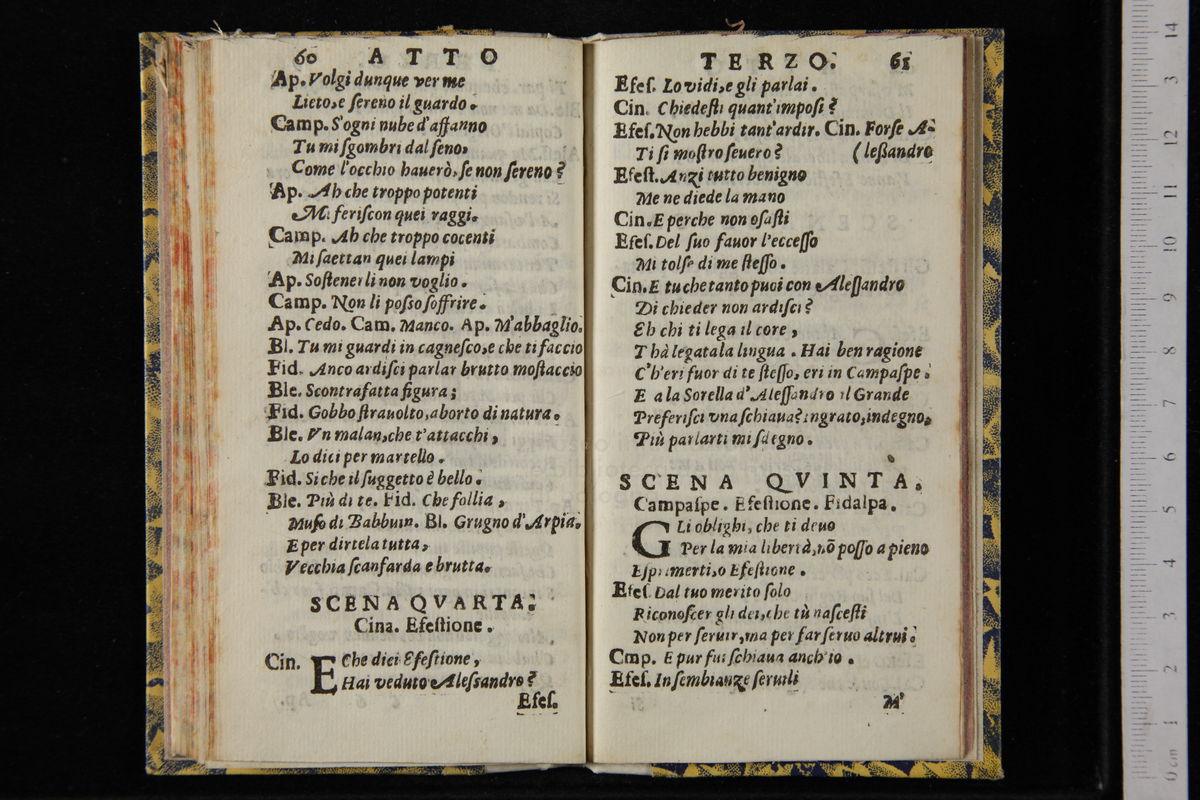 60 ATTO
Ap. Volgi dunque ver me
Lieto, e ſereno il guardo.
Camp. S'ogni nube d'affanno
Tu mi ſgombri dal ſeno,
Come l'occhio hauerò, ſe non ſereno?
Ap. Ah che troppo potenti
Mi feriſcon quei raggi.
Camp. Ah che troppo cocenti
Mi ſaettan quei lampi
Ap. Soſtenerli non voglio.
Camp. Non li poſso ſoffrire.
Ap. Cedo. Cam. Manco. Ap. M'abbaglio.
Bl. Tu mi guardi in cagneſco, e che ti faccio
Fid. Anco ardiſci parlar brutto moſtaccio
Ble. Scontrafatta figura;
Fid. Gobbo ſtrauolto, aborto di natura.
Ble. Vn malan, che t'attacchi,
Lo dici per martello.
Fid. Si che il ſuggetto è bello.
Ble. Più di te. Fid. Che follia,
Muſo di Babbuin. Bl. Grugno d'Arpia.
E per dirtela tutta,
Vecchia ſcanfarda e brutta.
SCENA QVARTA.
Cina. Efeſtione.
Cin. E Che dici Efeſtione,
Hai veduto Aleſsandro?
Efeſ.
TERZO. 61
Efeſ. Lo vidi, e gli parlai.
Cin. Chiedeſti quant'impoſi?
Efeſ. Non hebbi tant'ardir. Cin. Forſe A-
Ti ſi moſtro ſeuero? (leßandro
Efeſt. Anzi tutto benigno
Me ne diede la mano
Cin. E perche non oſaſti
Efeſ. Del ſuo fauor l'ecceſſo
Mi tolſe di me ſteſſo.
Cin. E tu che tanto puoi con Aleſſandro
Di chieder non ardiſci?
Eh chi ti lega il core,
T hà legata la lingua. Hai ben ragione
C'h'eri fuor di te ſteſſo, eri in Campaſpe.
E a la Sorella d'Aleſſandro il Grande
Preferiſci vna ſchiaua? ingrato, indegno,
Più parlarti mi ſdegno.
SCENA QVINTA.
Campaſpe. Efeſtione. Fidalpa.
GLi oblighi, che ti deuo
Per la mia libertà, nõ poſſo a pieno
Eſprimerti, o Efeſtione.
Efeſ. Dal tuo merito ſolo
Riconoſcer gli dei, che tù naſceſti
Non per ſeruir, ma per far ſeruo altrui.
Cmp. E pur fui ſchiaua anch'io.
Efeſ. In ſembianze ſeruili
M'